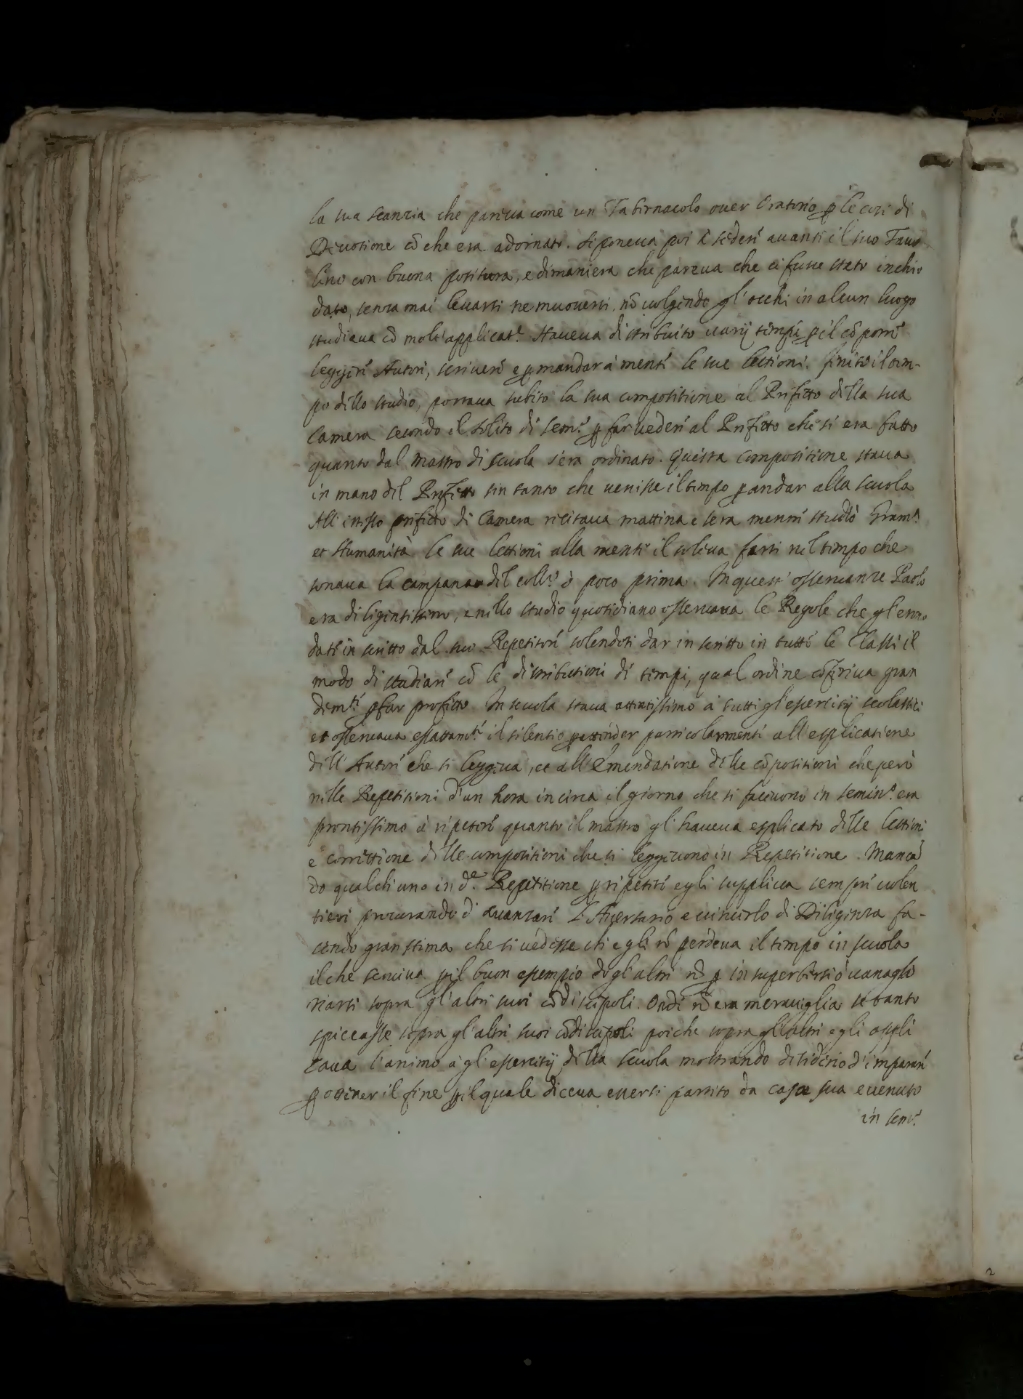 la sua scanzia che pareua come un Tabernacolo ouer Oratorio p le cose di
Deuotione cõ che era adornato. Si poneua poi à sedere auanti il suo Tauo
lino con buona positura, e di maniera che pareua che ci fusse stato inchio
dato, senza mai leuarsi ne muouersi. nõ uolgendo gl'occhi in alcun luogo
studiaua cõ molt'applicat.e Haueua distribuito uarij tempi p il cõporre
leggere Autori, scriuere e p mandar à mente le sue lettioni. finito il tem-
po dello studio, portaua subito la sua compositione al Prefetto della sua
Camera secondo il solito di Sem.o p far uedere al Prefetto che si era fatto
quanto dal Mastro di scuola s'era ordinato. Questa compositione staua
in mano del Prefetto sin tanto che uenisse il tempo p andar alla scuola
All'istesso prefetto di Camera recitaua mattina e sera mentre studiò Gram.a
et Humanità le sue lettioni alla mente il soleua farsi nel tempo che
sonaua la campana del coll.o ò poco prima. In queste osseruanze Paolo
era diligentissimo, e nello studio quotidiano osseruaua le Regole che gl'erano
date in scritto dal suo Repetitore solendosi dar in scritto in tutte le Classi il
modo di studiare cõ le distributioni di tempi, qual ordine cõferiua gran
dem.te p far profitto. In scuola staua attentissimo à tutti gl'essercitij scolastici
et osseruaua essattam.te il silentio p attender particolarmente all'esplicatione
dell'Autore che si leggeua, et all'Emendatione delle cõpositioni che però
nelle Repetitioni d'un hora in circa il giorno che si faceuono in Semin.o era
prontissimo à ripetere quanto il mastro gl'haueua esplicato delle lettioni
e correttione delle compositioni che si leggeuono in Repetitione. Mancã
do qualcheuno in d.a Repetitione p ripetere egli suppliua sempre uolen
tieri procurando d'auanzare l'Auersario e uincerlo di Diligenza fa-
cendo grandissima che si uedesse che egli nõ perdeua il tempo in scuola
il che seruiua p il buon esempio degl'altri nõ p insuperbirsi ò uanaglo
riarsi sopra gl'altri suoi cõdiscepoli. Onde nõ era merauiglia se tanto
spiccasse sopra gl'altri suoi cõdiscepoli poiche sopra gl'altri egli appli
caua l'animo à gl'essercitij della scuola mostrando desiderio d'imparare
p ottener il fine p il quale diceua essersi partito da casa sua e uenuto
in Sem.o